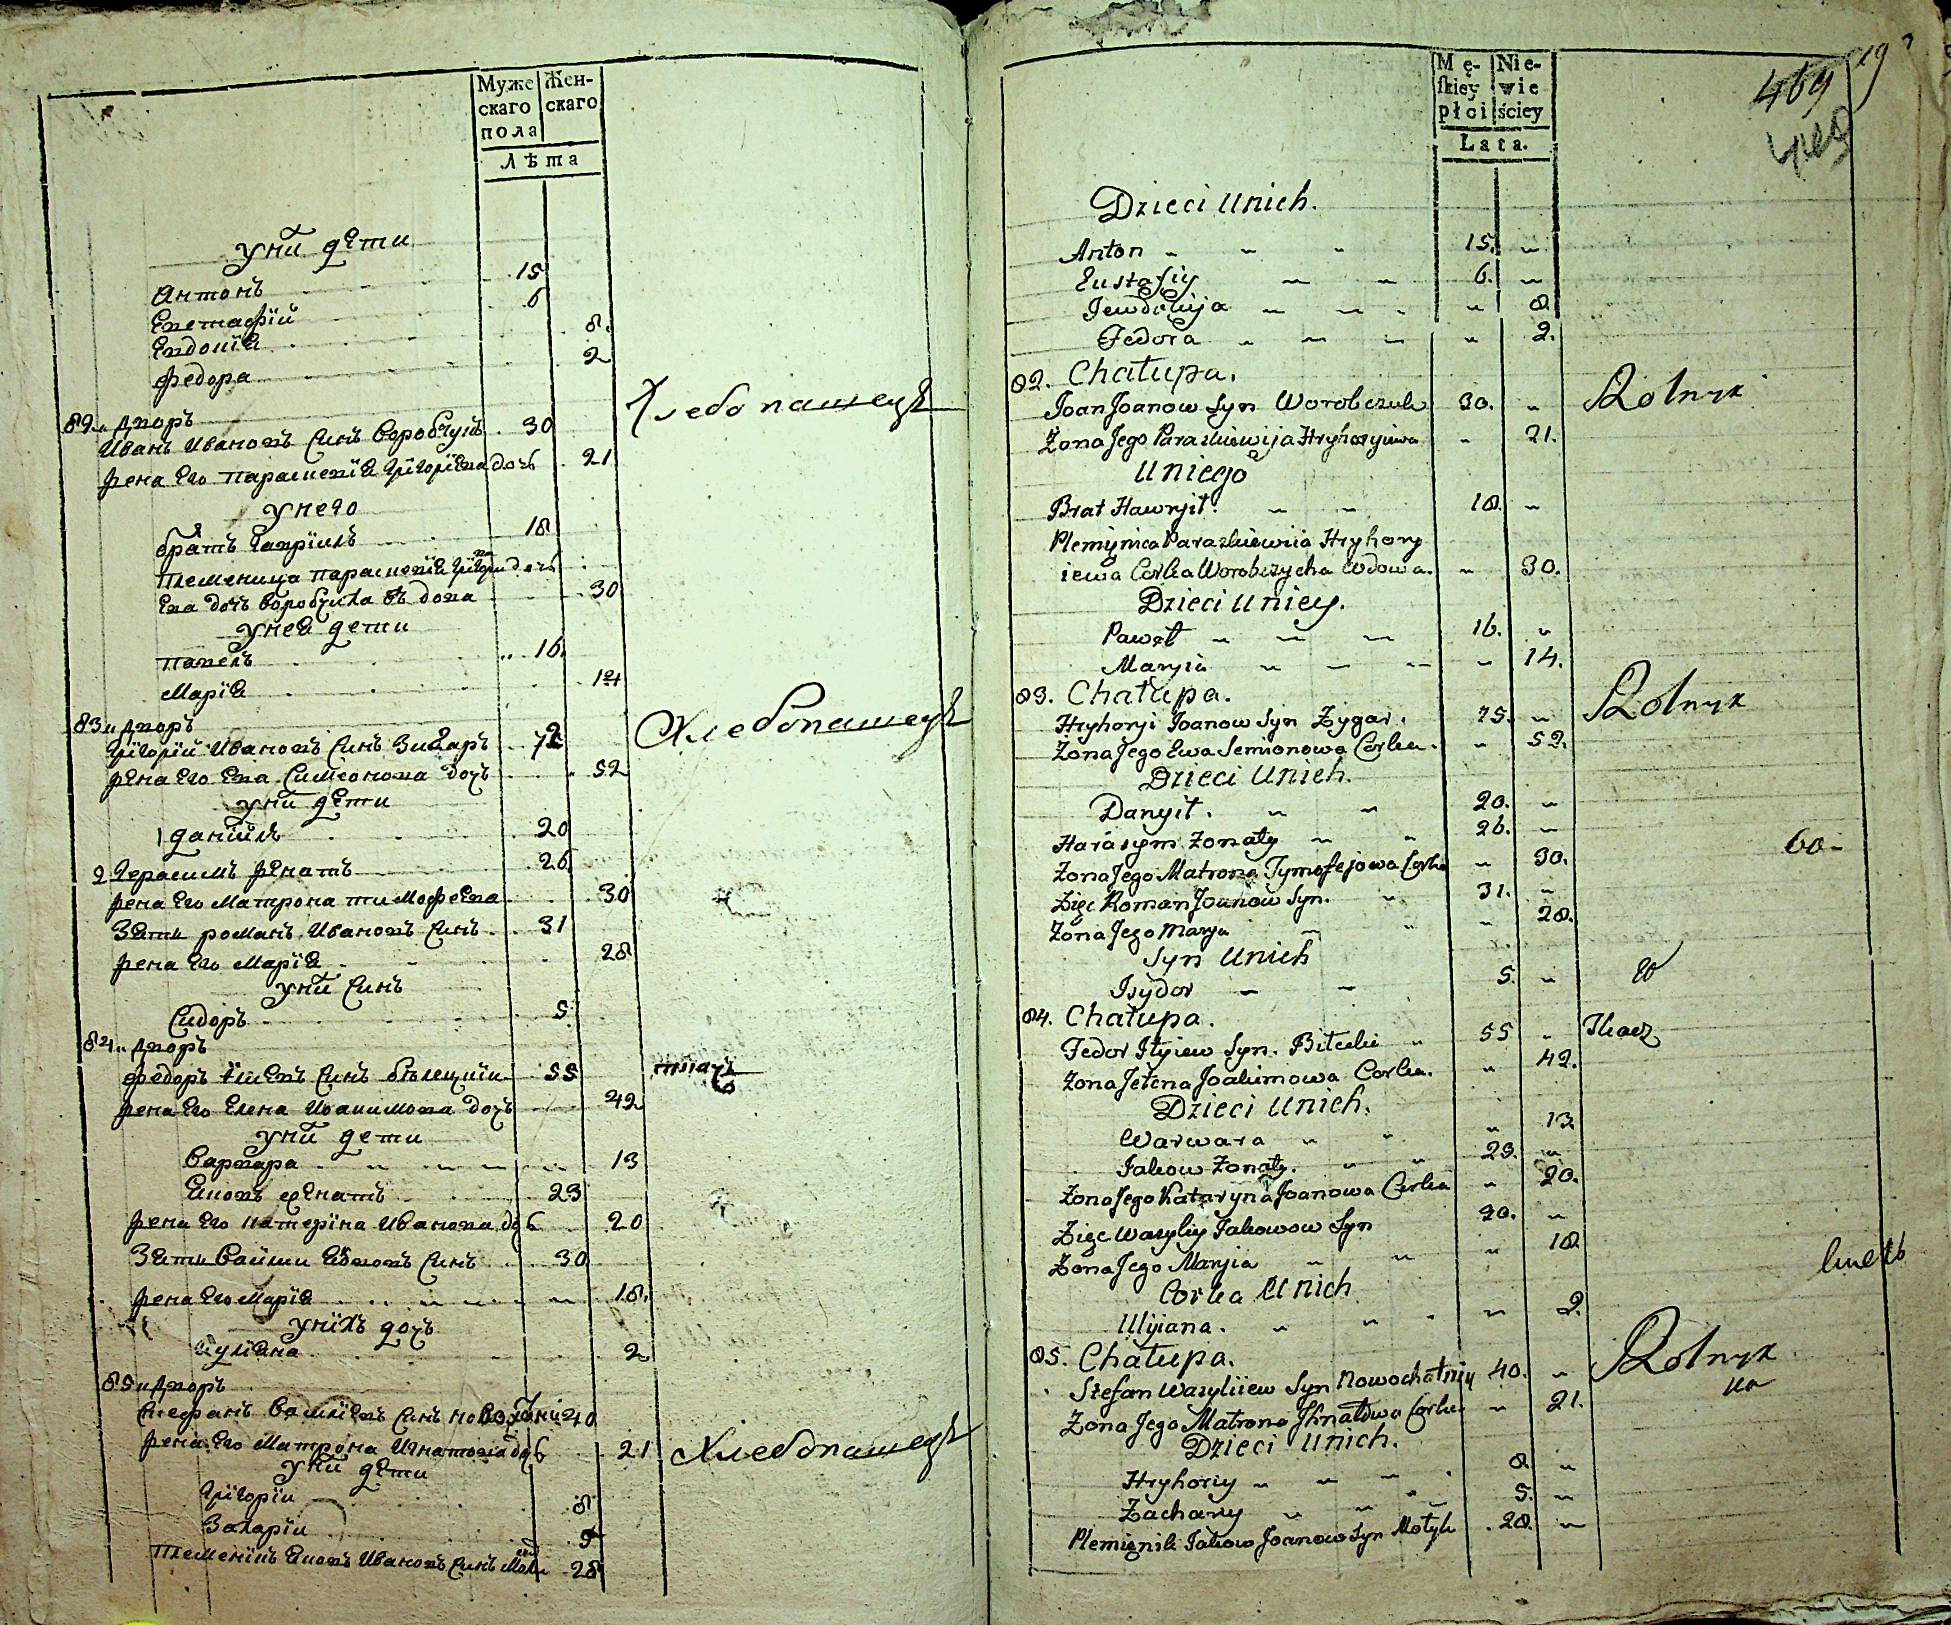 Муже
скаго
пола
Жен-
скаго
Лѣта
уни дети
Антонъ 15
Евстафiй 6
Евдокiя 8.
Федора 2
82. дворъ
Иванъ Ивановъ Синъ Воробчукъ 30 Хлебопашецъ
жена его Параскевiя Григорiева дочь 21
унего
братъ Гаврiилъ 18
племеница Параскевiя
дочь в дова 30
унея дети
Павелъ 16.
Марiя 14
83 дворъ
Григорiй Ивановъ Синъ Зигаръ Хлебопашецъ
жена его Ева Симеонова дочь 52
уни дети
1 Данiилъ 20
2 Герасимъ женатъ 26
жена его Матрона Тимофеева 30
Зять Романъ Ивановъ Синъ 31
жена его Марiя 28
уни Синъ
Сидоръ 5
84 дворъ
Федоръ Синъ 55 ткачъ
жена его Елена Иоакимова дочъ 42
уни дети
Варвара 13
Яковъ женатъ 23
жена его Катерiна Иванова дочь 20
Зять Яковъ Синъ 30
жена его Марiя 18.
унихъ дочъ
Иулiяна 2
85 дворъ
Стефанъ Василiевъ Синъ 40
жена его Матрона Игнатова дочь 21 Хлебопашецъ
уни дети
Григорiи 8
Захарiи 5
Племенiкъ Яковъ Ивановъ Синъ 28
Mę-
skiey
płci
Nie-
wie
ściey
Lata.
469
19
Dzieci Unich.
Anton „ „ „ 15. „
Eustafiy „ „ 6. „
Jewdokija „ „ „ „ 8.
Fedora „ „ „ „ 2.
82. Chałupa.
Joan Joanow Syn Worobczuk 30. „ Rolnyk
Żona Jego Paraskiewija Hryhoryiewa „ 21.
Uniego
Brat Hawryił. „ „ 18. „
Plemięnica Paraskiewiia Hryhory
iewa Corka Worobczycha Wdowa. „ 30.
Dzieci Uniey.
Paweł „ „ „ 16. „
Maryia „ „ „ „ 14.
83. Chałupa.
Hryhoryi Joanow Syn Zygar. 75. „ Rolnyk
Żona Jego Ewa Semionowa Corka. „ 52.
Dzieci Unich.
Danyił. „ „ 20. „
Harasym Żonaty „ „ 26. „
Żona Jego Matrona Tymofejowa Corka „ 30.
Zięc Roman Joanow Syn. „ 31. „
Żona Jego Marya „ „ „ 28.
Syn Unich
Isydor „ „ 5. „
84. Chałupa.
Fedor Ilyiew Syn. „ 55 „ Tkacz
Żona Jełena Joakimowa Corka. „ 42.
Dzieci Unich.
Warwara „ „ „ 13.
Jakow Żonaty. „ „ 23. „
Żona Jego Kataryna Joanowa Corka „ 20.
Zięc Wasyliy Jakowow Syn 30. „
Żona Jego Maryia „ „ „ 18
Corka Unich
Ulyiana. „ „ „ „ 2.
85. Chałupa.
Stefan Wasyliiew Syn Nowochatniy 40. „ Rolnyk
Żona Jego Matrona Ihnatowa Corka „ 21.
Dzieci Unich.
Hryhoriy „ „ „ 8. „
Zachary „ „ „ 5. „
Plemięnik Jakow Joanow Syn Motyk 28. „